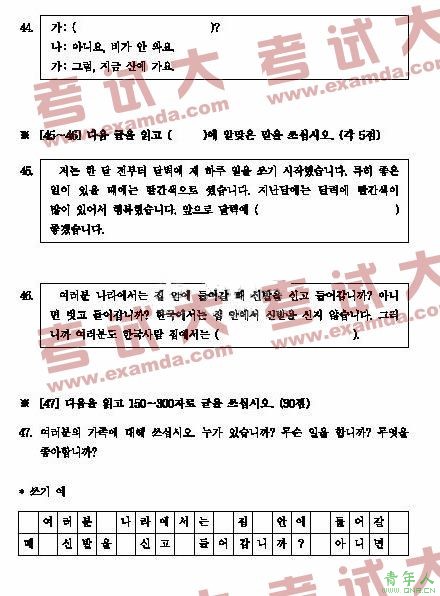 44. 가: (                    )?
나: 아니요, 비가 안 와요.
가: 그럼, 지금 산에 가요.
※ [45~46] 다음 글을 읽고 (     )에 알맞은 말을 쓰십시오. (각 5점)
45. 저는 한 달 전부터 달력에 제 하루 일을 쓰기 시작했습니다. 특히 좋은
일이 있을 때에는 빨간색으로 썼습니다. 지난달에는 달력에 빨간색이
많이 있어서 행복했습니다. 앞으로 달력에 (                    )
좋겠습니다.
46. 여러분 나라에서는 집 안에 들어갈 때 신발을 신고 들어갑니까? 아니
면 벗고 들어갑니까? 한국에서는 집 안에서 신발을 신지 않습니다. 그러
니까 여러분도 한국사람 집에서는 (                    ).
※ [47] 다음을 읽고 150~300자로 글을 쓰십시오. (30점)
47. 여러분의 가족에 대해 쓰십시오. 누가 있습니까? 무슨 일을 합니까? 무엇을
좋아합니까?
* 쓰기 예
여러분 나라에서는 집 안에 들어갈
때 신발을 신고 들어갑니까? 아니면
考试大
www.examda.com
考试大
www.examda.com
考试大
www.examda.com
青年人
www.QNR.CN